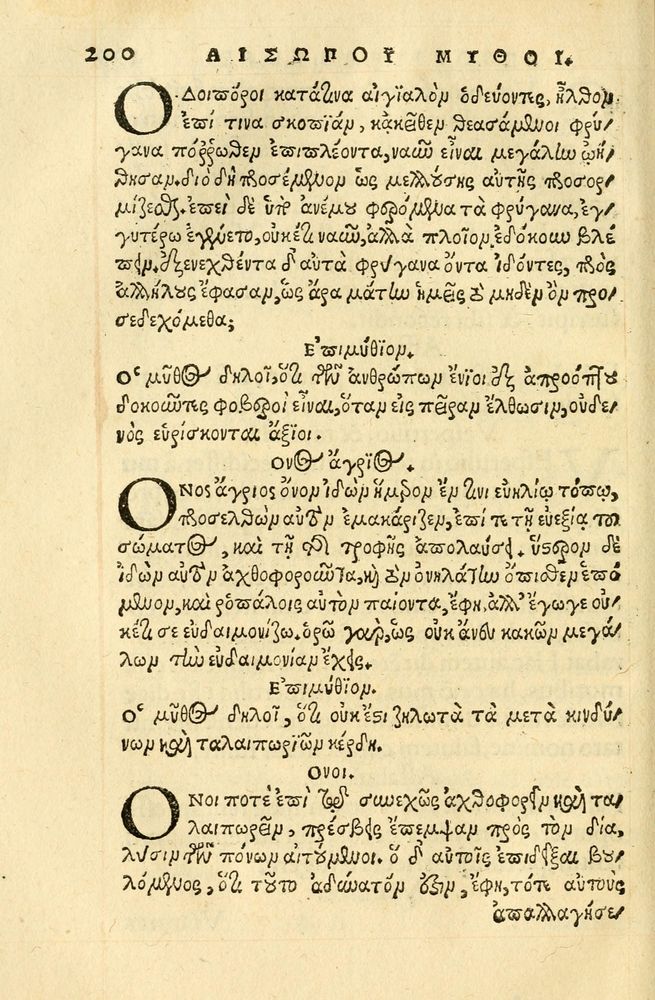 200 ΑΙΣΩΠΟΥ ΜΥΘΟΙ.
ΟΔοιπόροι κατά τινα αἰγιαλὸν ὁδεύοντες, ἦλθον
ἐπί τινα σκοπιάν, κἀκεῖθεν θεασάμενοι φρύ/
γανα πόρρωθεν ἐπιπλέοντα, ναῦν εἶναι μεγάλην ᾠή/
θησαν. διὸ δὴ προσέμενον ὡς μελλούσης αὐτῆς προσορ/
μίζεσθαι. ἐπεὶ δὲ ὑπὸ ἀνέμου φερόμενα τὰ φρύγανα, ἐγ/
γυτέρω ἐγένετο, οὐκέτι ναῦν, ἀλλὰ πλοῖον ἐδόκουν βλέ
πειν. ἐξενεχθέντα δ' αὐτὰ φρύγανα ὄντα ἰδόντες, πρὸς
ἀλλήλους ἔφασαν, ὡς ἄρα μάτην ἡμεῖς τὸ μηδὲν ὂν προ/
σεδεχόμεθα;
Ἐπιμύθιον.
Ὁ μῦθος δηλοῖ, ὅτι τῶν ἀνθρώπων ἔνιοι ἐξ ἀπροόπτου
δοκοῦντες φοβεροὶ εἶναι, ὅταν εἰς πεῖραν ἔλθωσιν, οὐδε/
νὸς εὑρίσκονται ἄξιοι.
Ὄνος ἄγριος.
ΟΝος ἄγριος ὄνον ἰδὼν ἥμερον ἔν τινι εὐηλίῳ τόπῳ,
προσελθὼν αὐτὸν ἐμακάριζεν, ἐπί τε τῇ εὐεξίᾳ τοῦ
σώματος, καὶ τῇ τῆς τροφῆς ἀπολαύσει. ὕστερον δὲ
ἰδὼν αὐτὸν ἀχθοφοροῦντα, καὶ τὸν ὀνηλάτην ὄπισθεν ἑπό
μενον, καὶ ῥοπάλοις αὐτὸν παίοντα, ἔφη, ἀλλ' ἔγωγε οὐ/
κέτι σε εὐδαιμονίζω. ὁρῶ γὰρ, ὡς οὐκ ἄνευ κακῶν μεγά/
λων τὴν εὐδαιμονίαν ἔχεις.
Ἐπιμύθιον.
Ὁ μῦθος δηλοῖ, ὅτι οὐκ ἔστι ζηλωτὰ τὰ μετὰ κινδύ/
νων καὶ ταλαιπωριῶν κέρδη.
Ὄνοι.
ΟΝοι ποτὲ ἐπὶ τῷ συνεχῶς ἀχθοφορεῖν καὶ τα/
λαιπωρεῖν, πρέσβεις ἔπεμψαν πρὸς τὸν δία,
λύσιν τῶν πόνων αἰτούμενοι. ὁ δ' αὐτοῖς ἐπιδεῖξαι βου/
λόμενος, ὅτι τοῦτο ἀδύνατόν ἐστιν, ἔφη, τότε αὐτοὺς
ἀπαλλαγήσε/